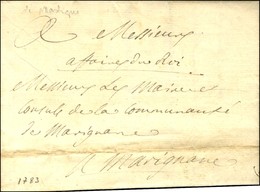 A Messieurs
affaires du Roi
Messieurs Les Maires
Consuls de la Communauté
de Marignane
a Marignane
1783